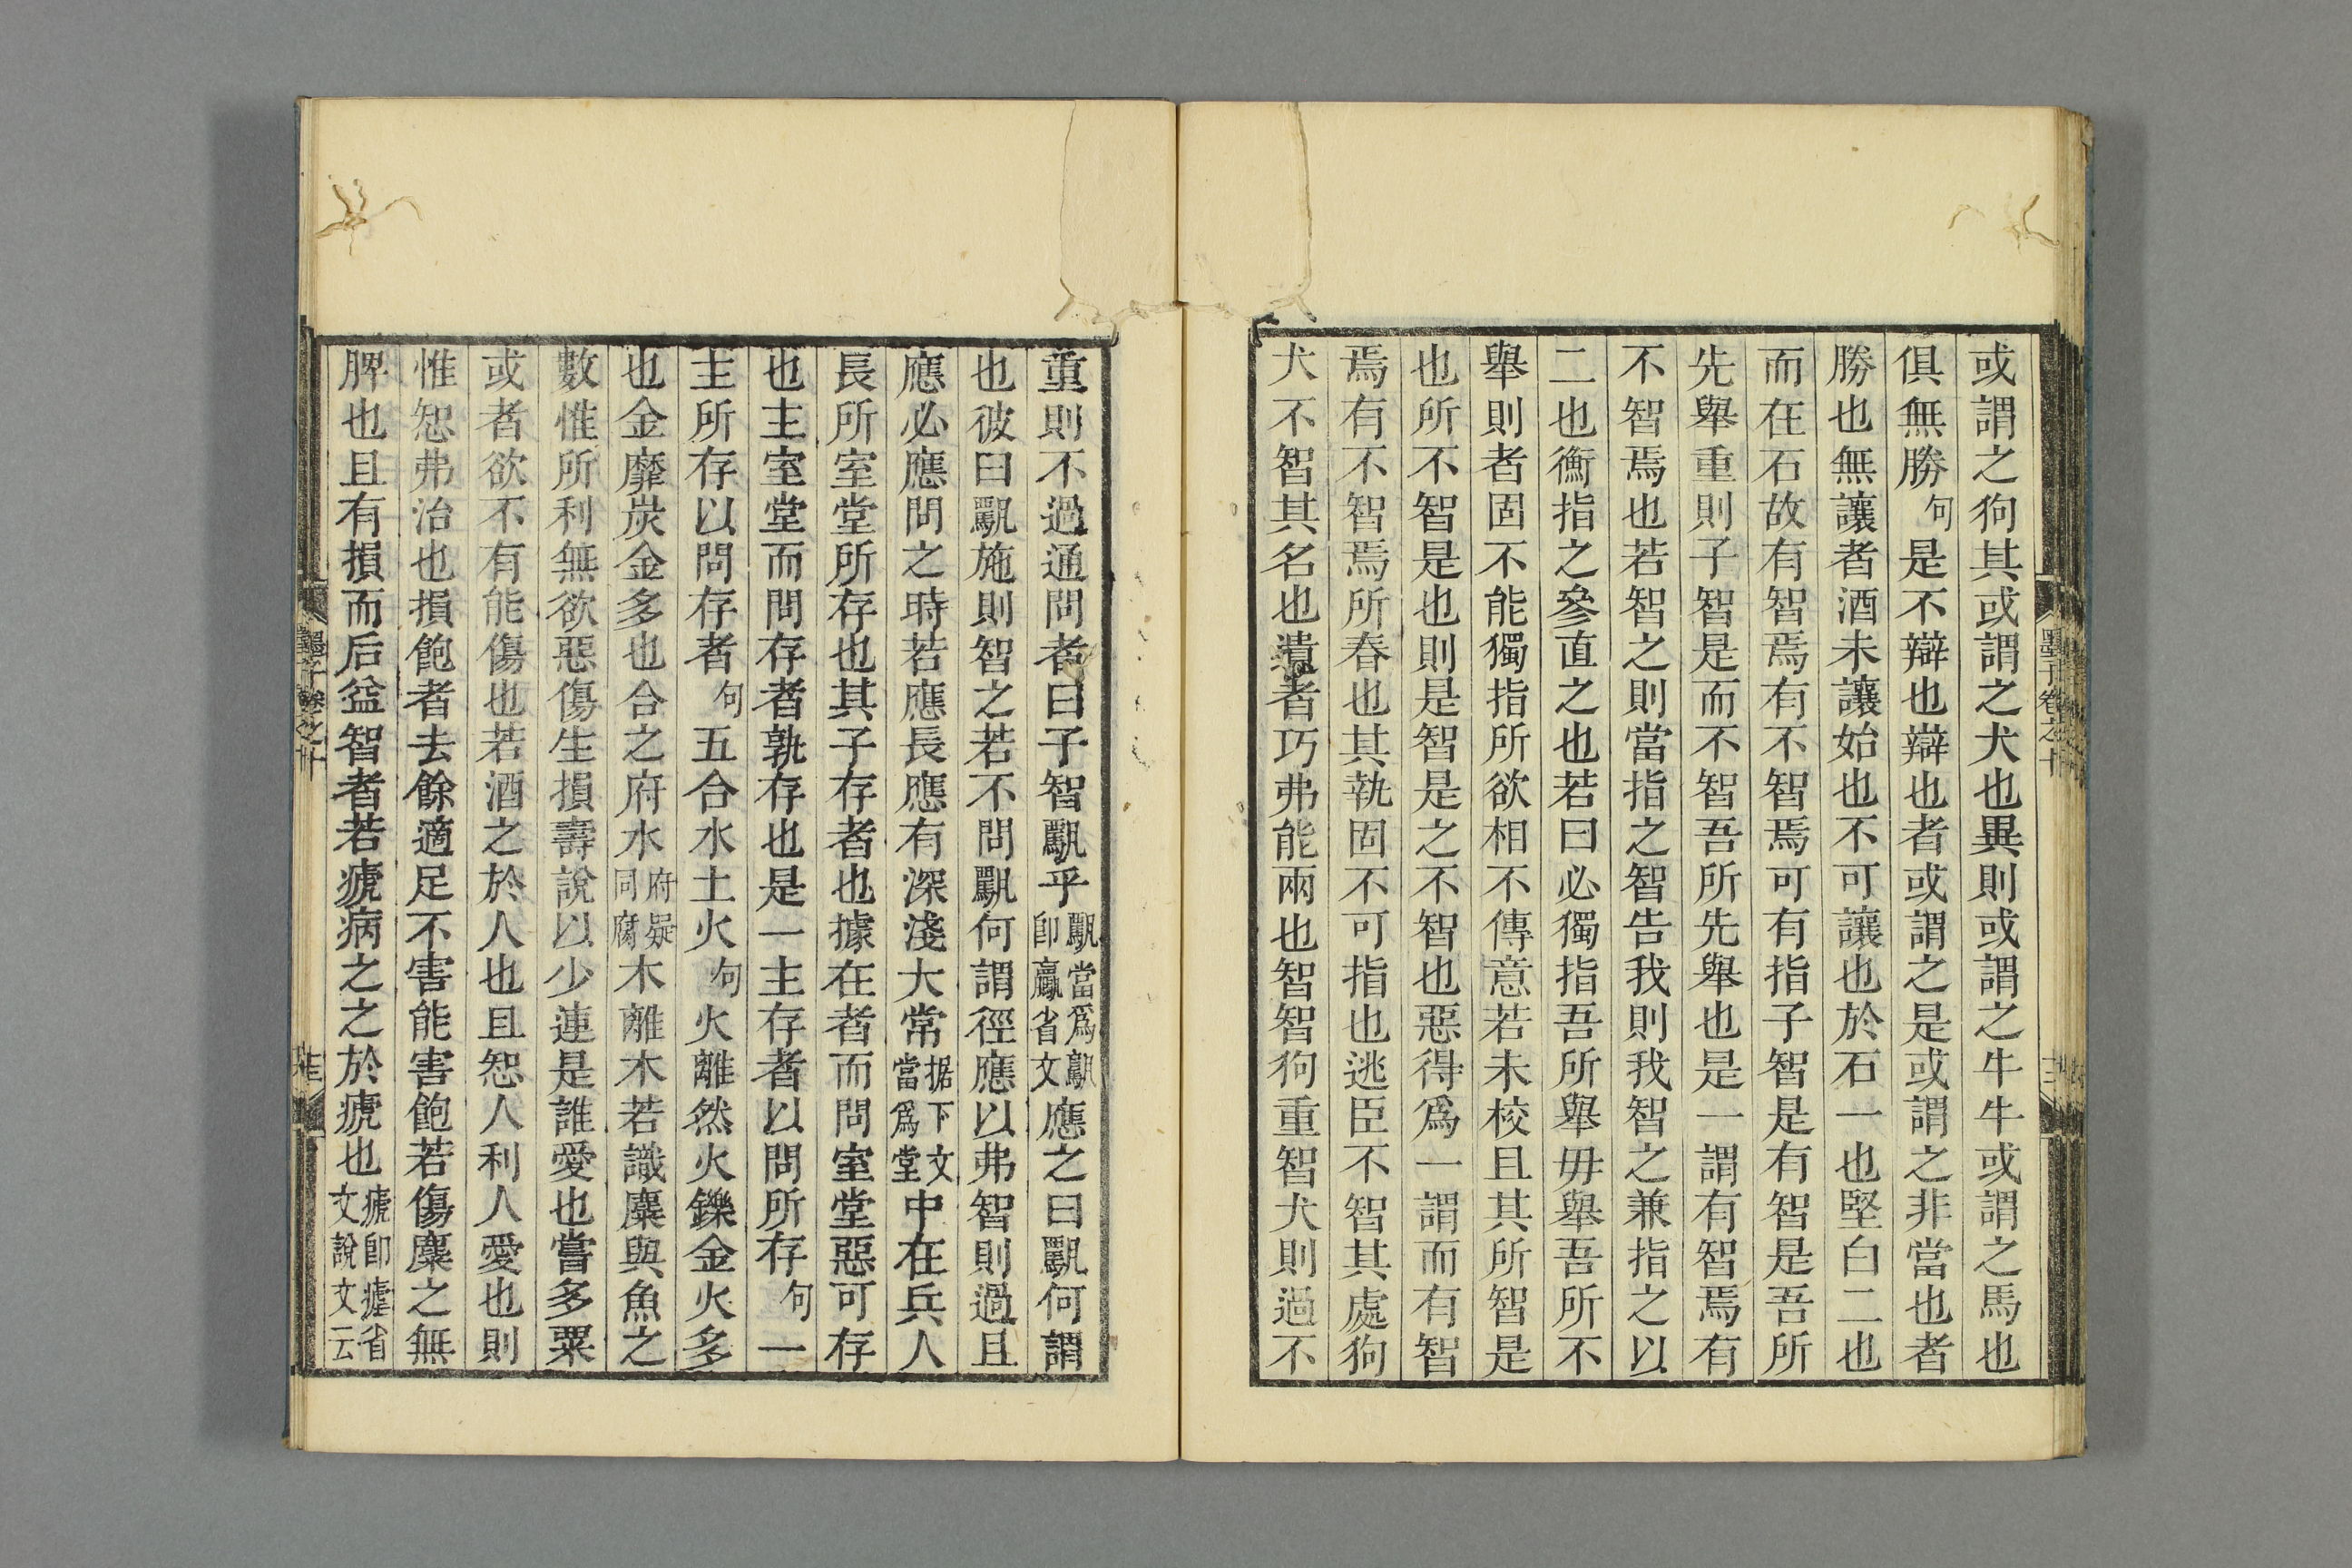 或謂之狗其或謂之犬也異則或謂之牛牛或謂之馬也
俱無勝句是不辯也辯也者或謂之是或謂之非當也者
勝也無讓者酒未讓始也不可讓也於石一也堅白二也
而在石故有智焉有不智焉可有指子智是有智是吾所
先舉重則子智是而不智吾所先舉也是一謂有智焉有
不智焉也若智之則當指之智告我則我智之兼指之以
二也衡指之參直之也若曰必獨指吾所舉毋舉吾所不
舉則者固不能獨指所欲相不傳意若未校且其所智是
也所不智是也則是智是之不智也惡得爲一謂而有智
焉有不智焉所春也其執固不可指也逃臣不智其處狗
犬不智其名也遺者巧弗能兩也智智狗重智犬則過不
墨子卷之十
重則不過通問者曰子智䮦乎䮦當爲䮦卽臝省文應之曰䮦何謂
也彼曰䮦施則智之若不問䮦何謂徑應以弗智則過且
應必應問之時若應長應有深淺大常据下文當爲堂中在兵人
長所室堂所存也其子存者也據在者而問室堂惡可存
也主室堂而問存者孰存也是一主存者以問所存句一
主所存以問存者句五合水土火句火離然火鑠金火多
也金靡炭金多也合之府水府疑同腐木離木若識麋與魚之
數惟所利無欲惡傷生損壽說以少連是誰愛也嘗多粟
或者欲不有能傷也若酒之於人也且恕人利人愛也則
惟恕弗治也損飽者去餘適足不害能害飽若傷麋之無
脾也且有損而后益智者若瘧病之之於瘧也瘧卽瘧省文說文云
墨子卷之十